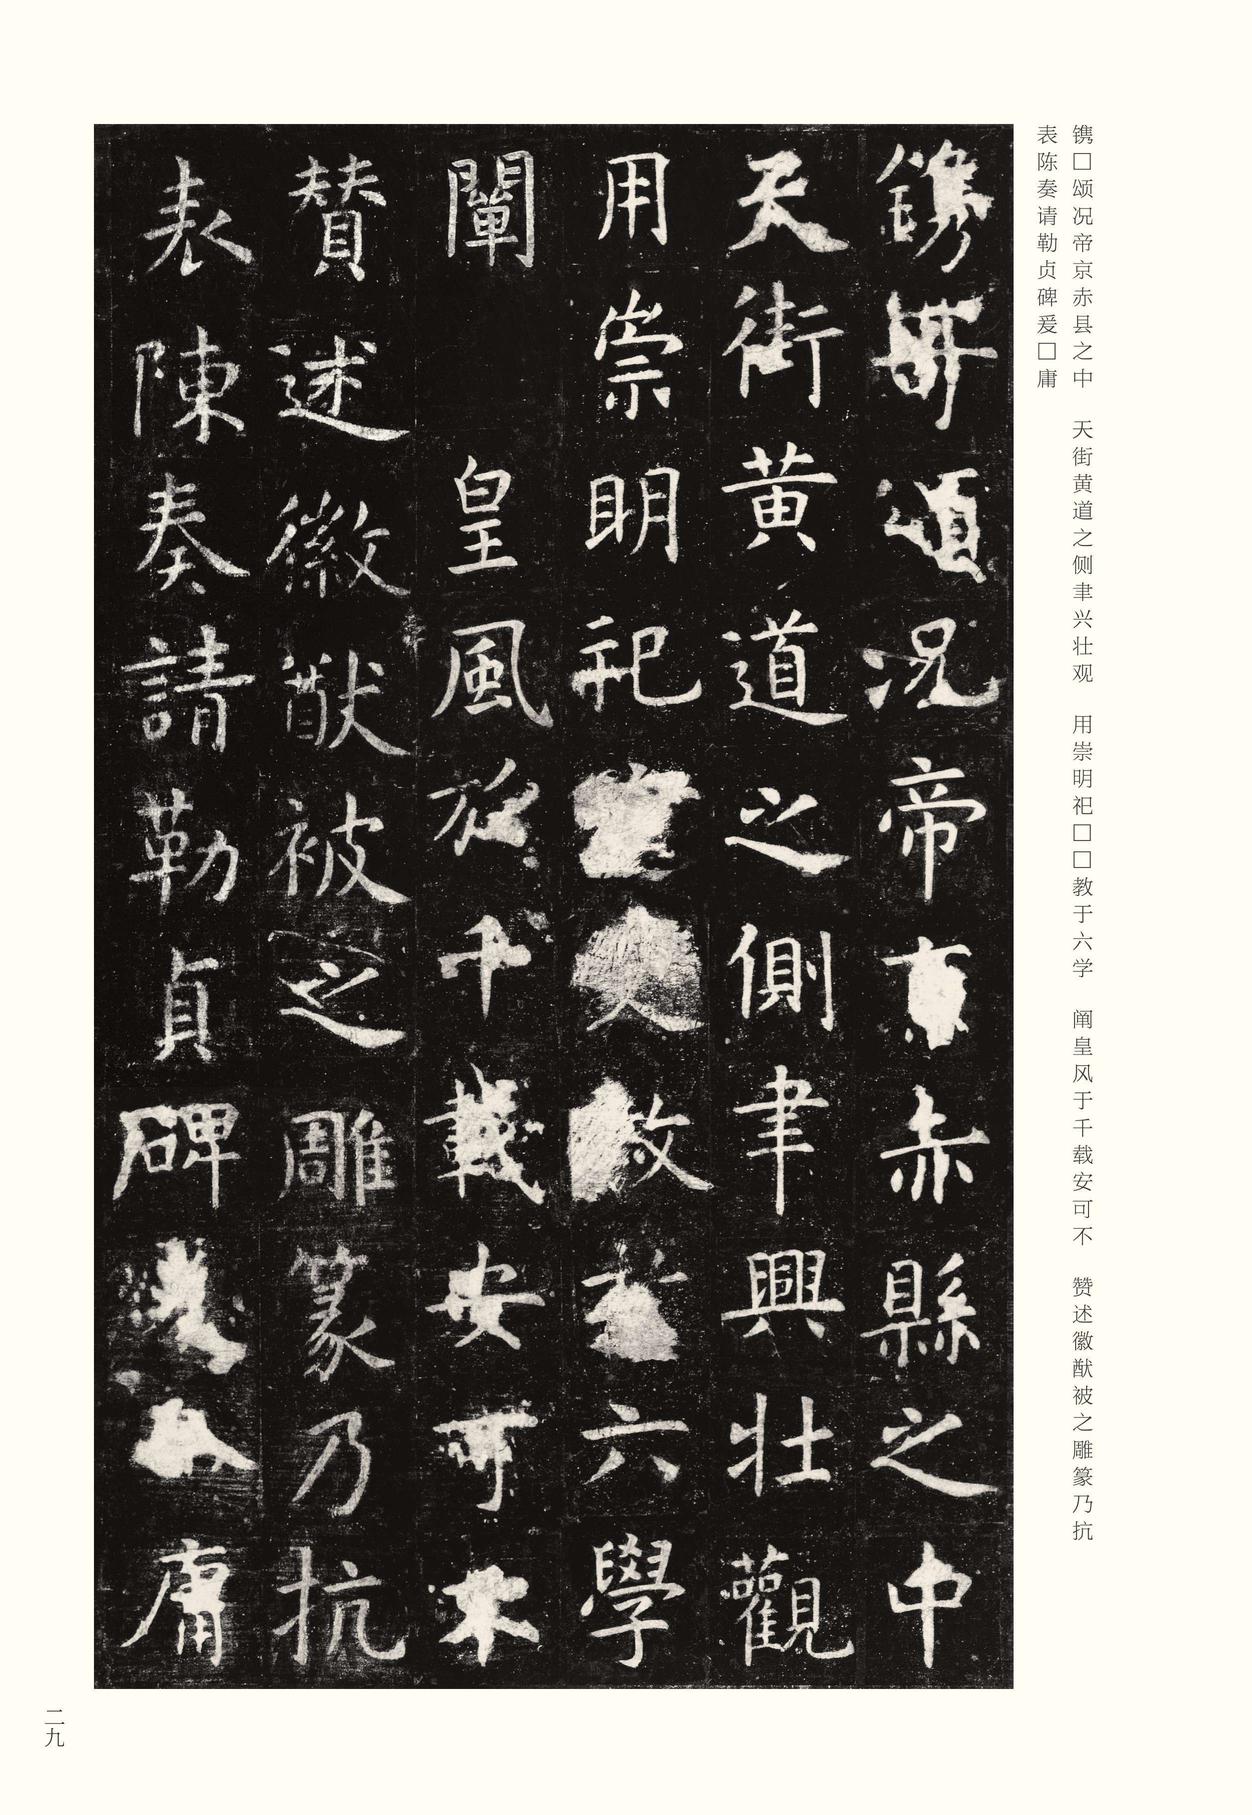 镌□颂况帝京赤县之中　天街黄道之侧聿兴壮观　用崇明祀□□教于六学　阐皇风于千载安可不　赞述徽猷被之雕篆乃抗
表陈奏请勒贞碑爰□庸
鐫頌况帝京赤縣之中
天街黄道之側聿興壯觀
用崇明祀教於六學
闡皇風於千載安可不
贊述徽猷被之雕篆乃抗
表陳奏請勒貞碑庸
二九